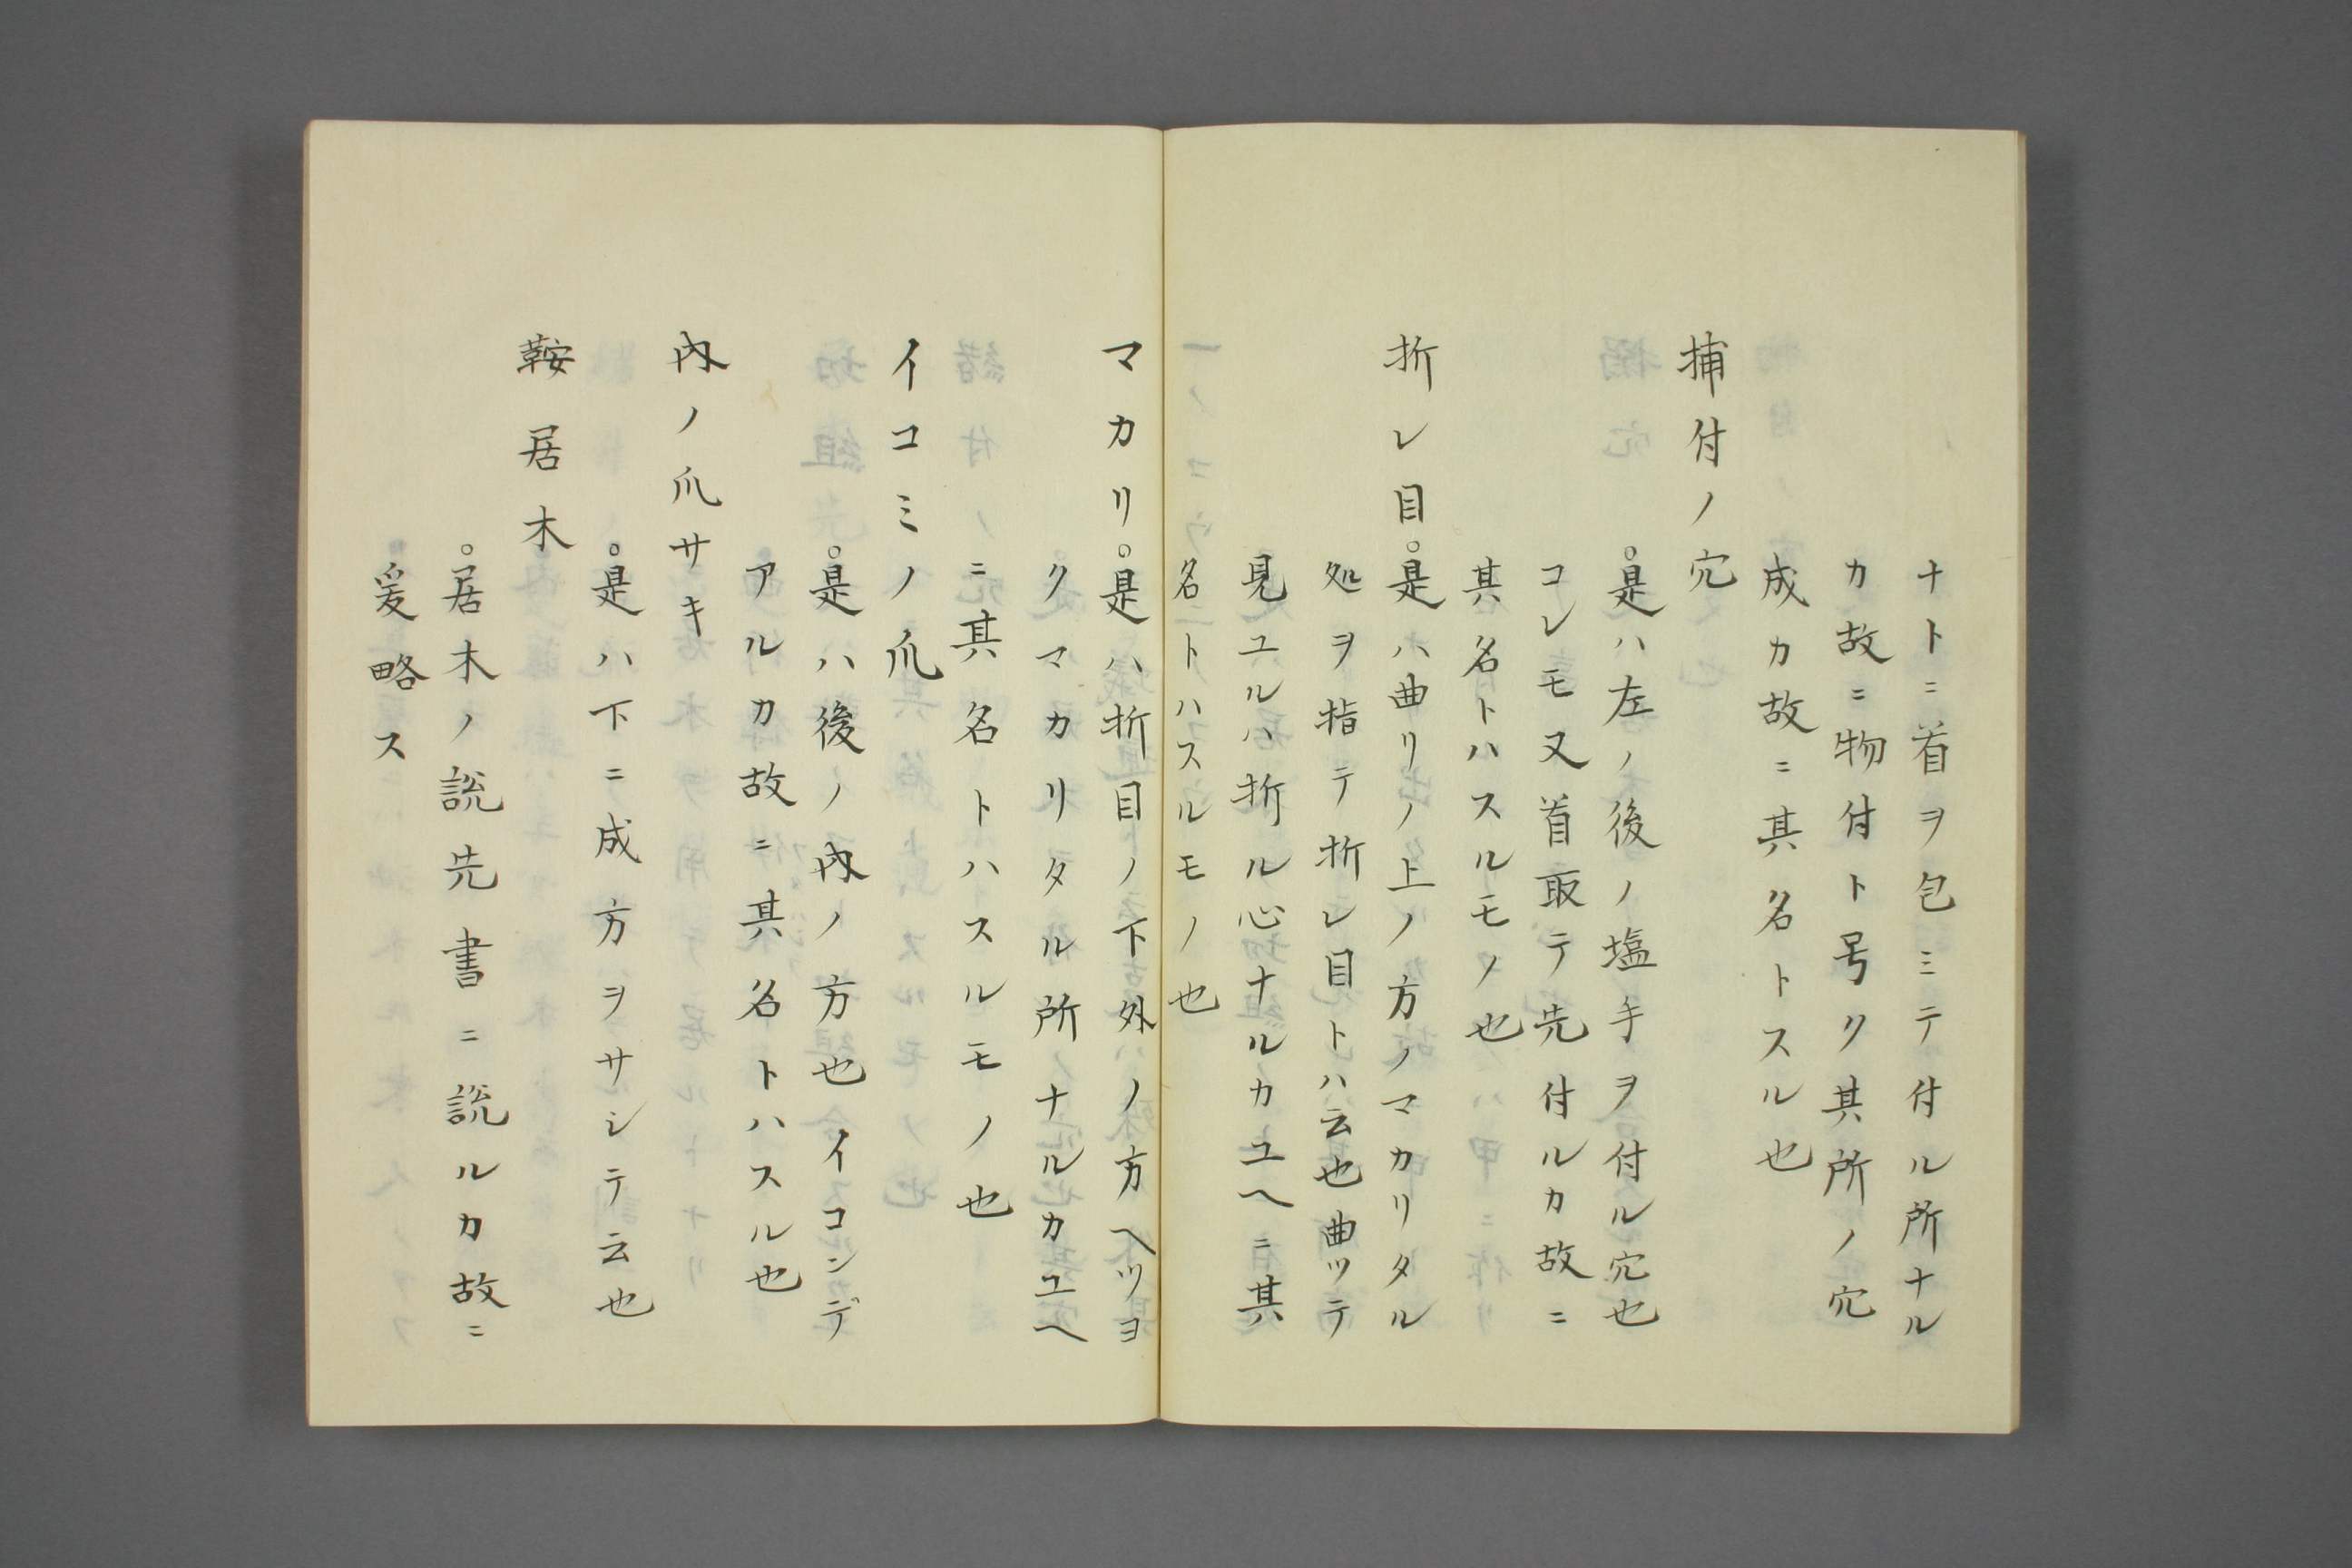 ナトニ首ヲ包ミテ付ル所ナル
カ故ニ物付ト号ク其所ノ穴
成カ故ニ其名トスル也
捕付ノ穴
。是ハ左ノ後ノ塩手ヲ付ル穴也
コレモ又首取テ先付ルカ故ニ
其名トハスルモノ也
折レ目。是ハ曲リノ上ノ方ノマカリタル
処ヲ指テ折レ目トハ云也曲ッテ
見ユルハ折ル心ナルカユヘニ其
名トハスルモノ也
マカリ。是ハ折目ノ下外ノ方ヘツヨ
クマカリタル所ナルカユヘ
ニ其名トハスルモノ也
イコミノ爪
。是ハ後ノ内ノ方也イコンデ
アルカ故ニ其名トハスル也
内ノ爪サキ
。是ハ下ニ成方ヲサシテ云也
鞍居木
。居木ノ説先書ニ説ルカ故ニ
爰略ス